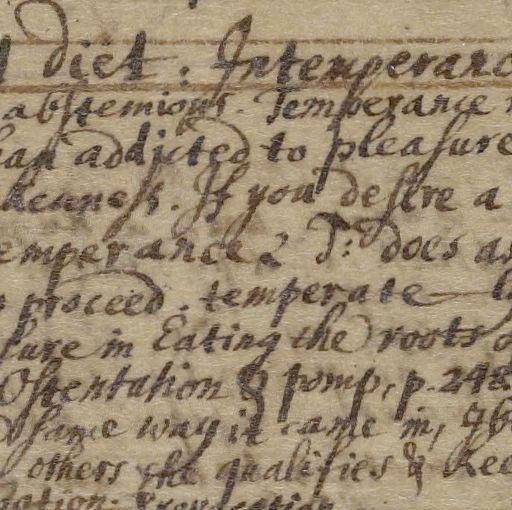 diet: Intemperanc
abstemious. Temperance
addicted to pleasure
If you desire a
emperance & T: does as
proceed. temperate
sure in Eating the roots
Ostentation & pomp, p. 248
same way it came in,
others the qualifies & kee